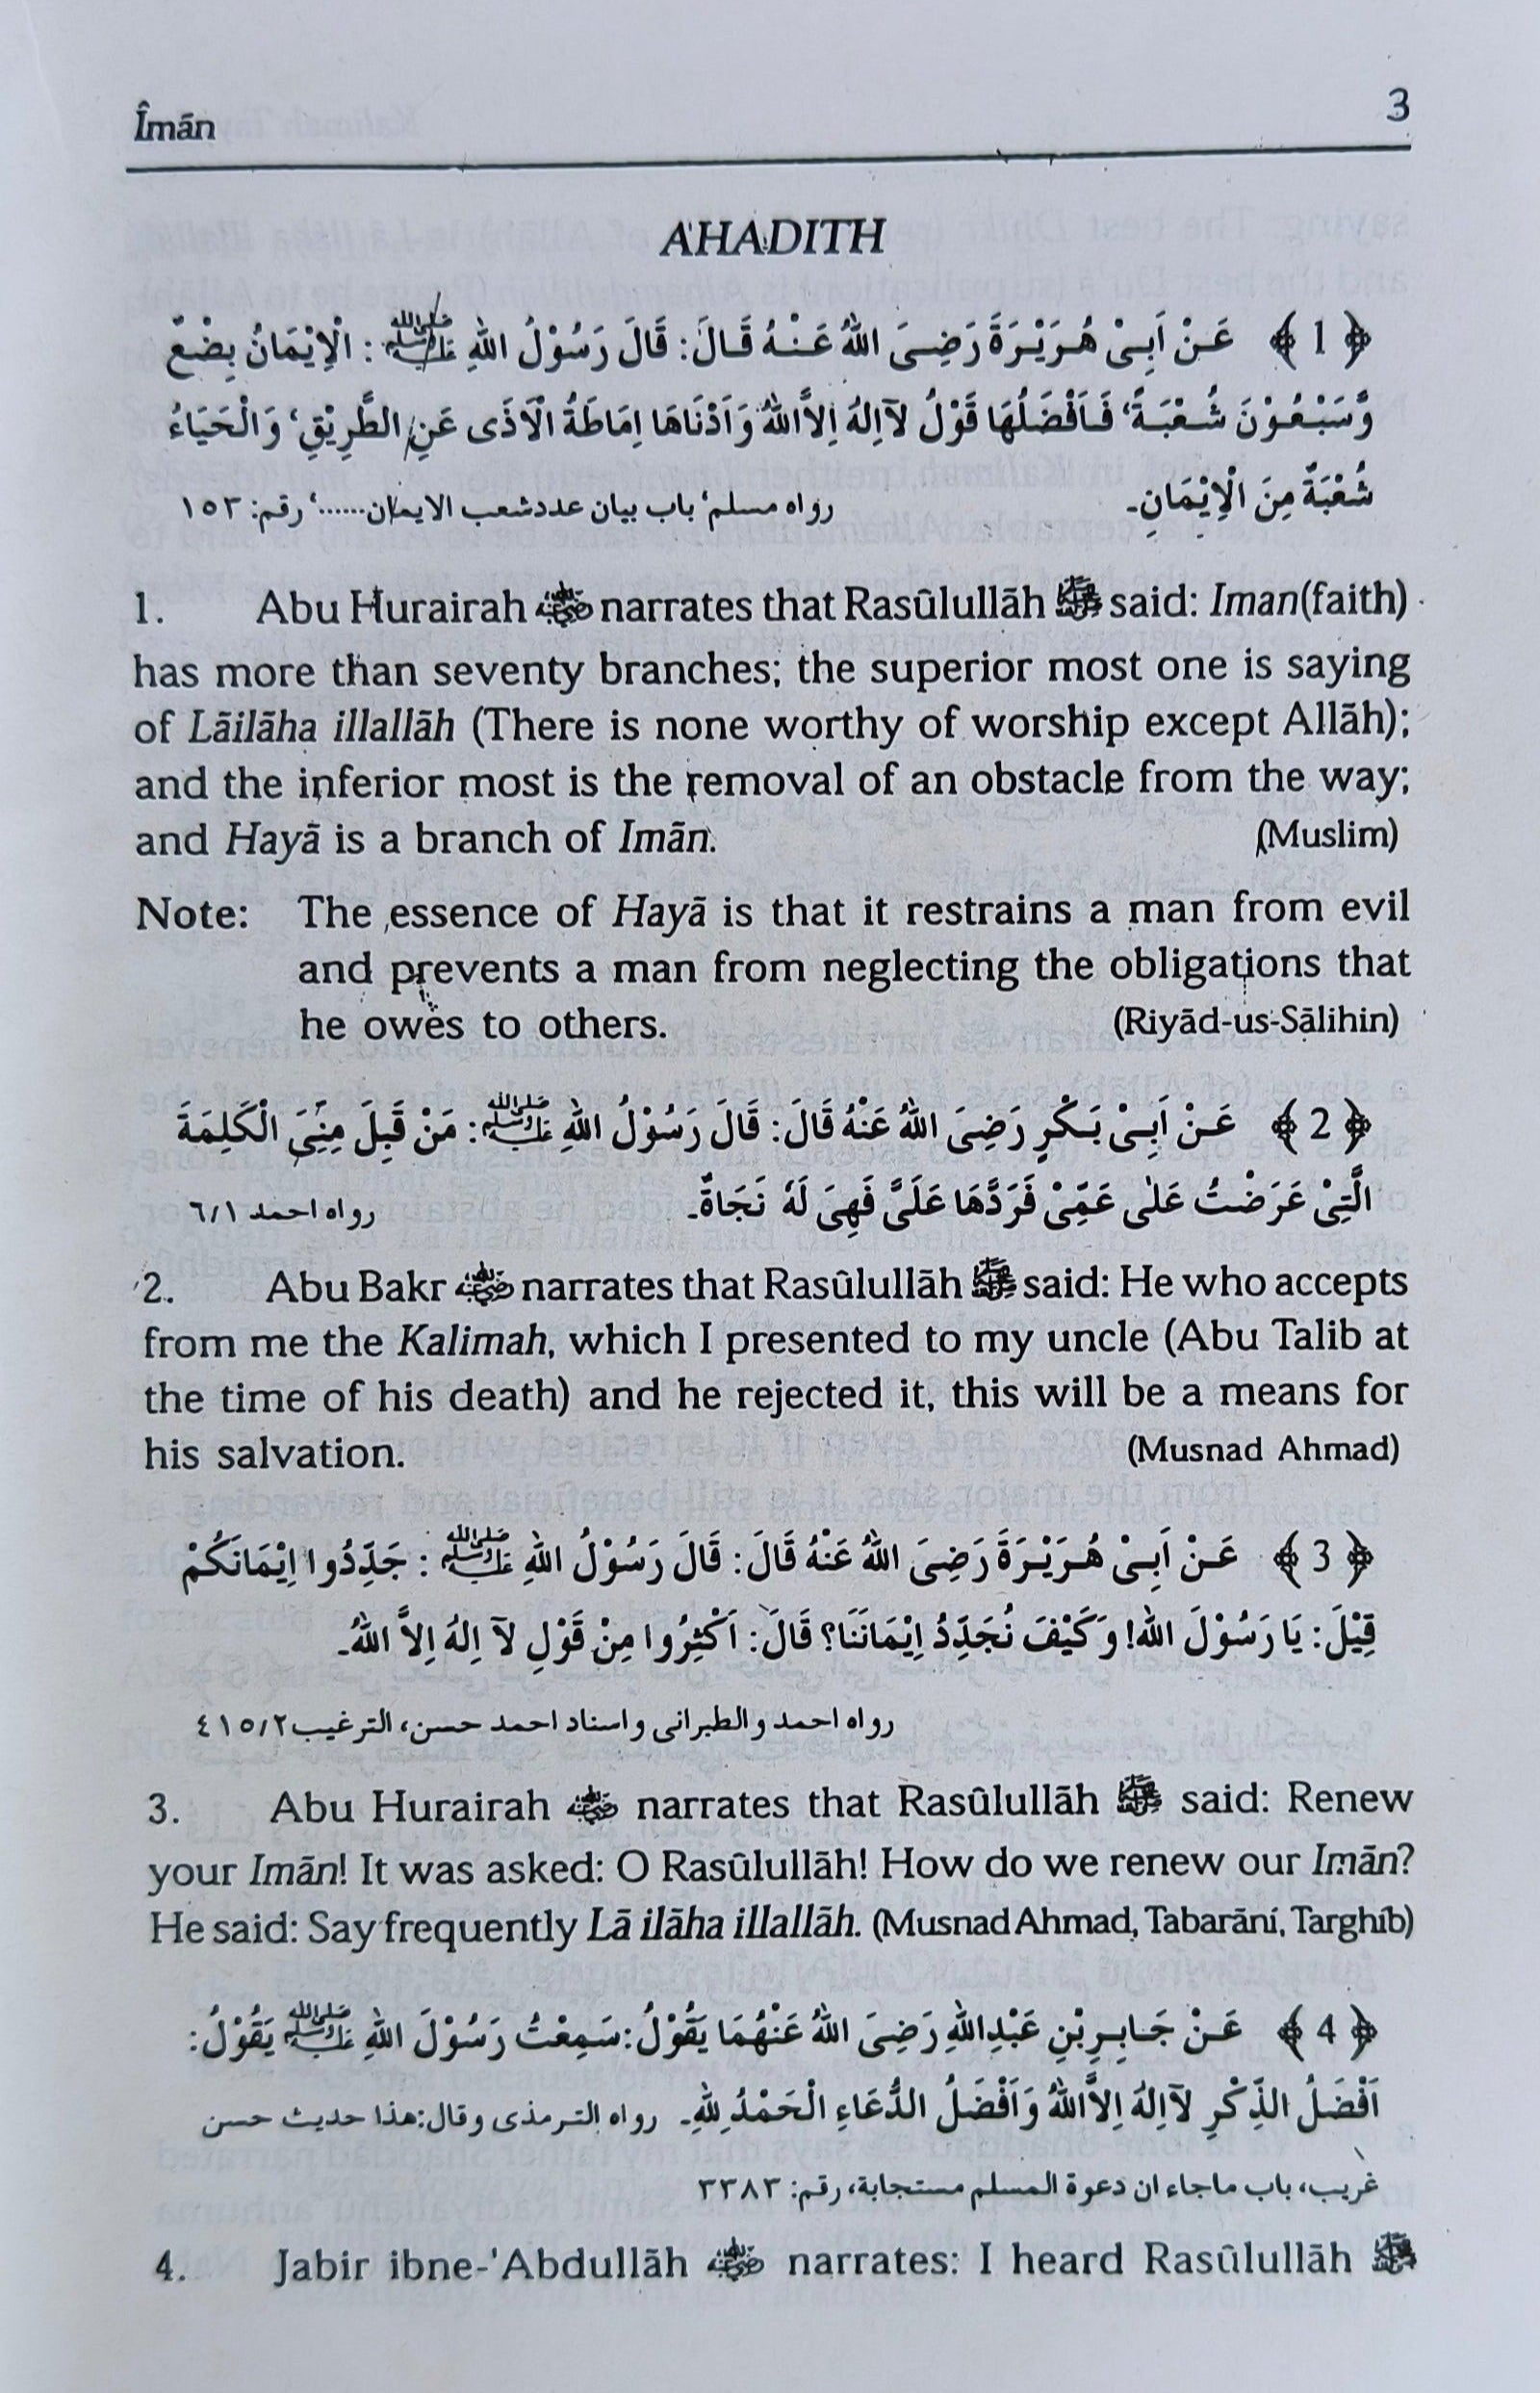 Îmān 3
AHADITH
﴿ 1 ﴾ عَنْ اَبِىْ هُرَيْرَةَ رَضِىَ اللهُ عَنْهُ قَالَ: قَالَ رَسُوْلُ اللهِ ﷺ : الْاِيْمَانُ بِضْعٌ
وَّسَبْعُوْنَ شُعْبَةً، فَاَفْضَلُهَا قَوْلُ لَآاِلٰهَ اِلَّااللهُ وَاَدْنَاهَا اِمَاطَةُ الْاَذَى عَنِ الطَّرِيْقِ، وَالْحَيَاءُ
شُعْبَةٌ مِنَ الْاِيْمَانِ۔ رواه مسلم، باب بيان عددشعب الايمان......، رقم: ١٥٣
1. Abu Hurairah ؓ narrates that Rasûlullāh ﷺ said: Iman(faith)
has more than seventy branches; the superior most one is saying
of Lāilāha illallāh (There is none worthy of worship except Allāh);
and the inferior most is the removal of an obstacle from the way;
and Hayā is a branch of Imān. (Muslim)
Note: The essence of Hayā is that it restrains a man from evil
and prevents a man from neglecting the obligations that
he owes to others. (Riyād-us-Sālihin)
﴿ 2 ﴾ عَنْ اَبِىْ بَكْرٍ رَضِىَ اللهُ عَنْهُ قَالَ: قَالَ رَسُوْلُ اللهِ ﷺ: مَنْ قَبِلَ مِنِّىَ الْكَلِمَةَ
الَّتِىْ عَرَضْتُ عَلٰى عَمِّىْ فَرَدَّهَا عَلَىَّ فَهِىَ لَهُ نَجَاةٌ۔ رواه احمد ٦/١
2. Abu Bakr ؓ narrates that Rasûlullāh ﷺ said: He who accepts
from me the Kalimah, which I presented to my uncle (Abu Talib at
the time of his death) and he rejected it, this will be a means for
his salvation. (Musnad Ahmad)
﴿ 3 ﴾ عَنْ اَبِىْ هُرَيْرَةَ رَضِىَ اللهُ عَنْهُ قَالَ: قَالَ رَسُوْلُ اللهِ ﷺ : جَدِّدُوا اِيْمَانَكُمْ
قِيْلَ: يَا رَسُوْلَ اللهِ! وَكَيْفَ نُجَدِّدُ اِيْمَانَنَا؟ قَالَ: اَكْثِرُوا مِنْ قَوْلِ لَآ اِلٰهَ اِلَّا اللهُ۔
رواه احمد والطبرانى واسناد احمد حسن، الترغيب ٤١٥/٢
3. Abu Hurairah ؓ narrates that Rasûlullāh ﷺ said: Renew
your Imān! It was asked: O Rasûlullāh! How do we renew our Imān?
He said: Say frequently Lā ilāha illallāh. (Musnad Ahmad, Tabarāní, Targhíb)
﴿ 4 ﴾ عَنْ جَابِرِبْنِ عَبْدِاللهِ رَضِىَ اللهُ عَنْهُمَا يَقُوْلُ:سَمِعْتُ رَسُوْلَ اللهِ ﷺ يَقُوْلُ:
اَفْضَلُ الذِّكْرِ لَآاِلٰهَ اِلَّااللهُ وَاَفْضَلُ الدُّعَاءِ الْحَمْدُ لِلّٰهِ۔ رواه الترمذى وقال:هذا حديث حسن
غريب، باب ماجاء ان دعوة المسلم مستجابة، رقم: ٣٣٨٣
4. Jabir ibne-'Abdullāh ؓ narrates: I heard Rasûlullāh ﷺ